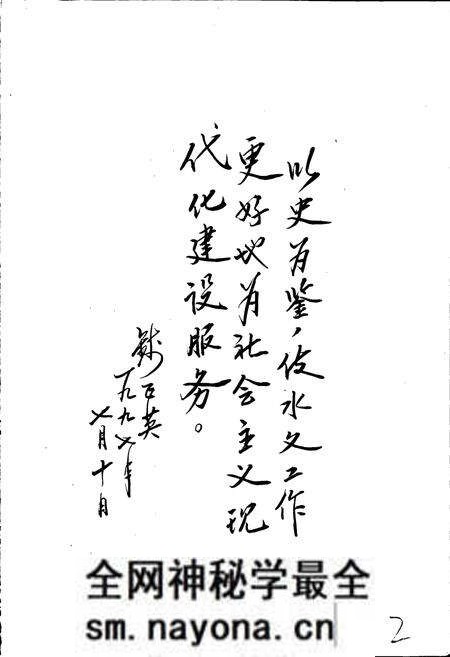 以史为鉴，使水文工作
更好地为社会主义现
代化建设服务。
钱正英
一九九七年
七月十日
全网神秘学最全
sm.nayona.cn
2